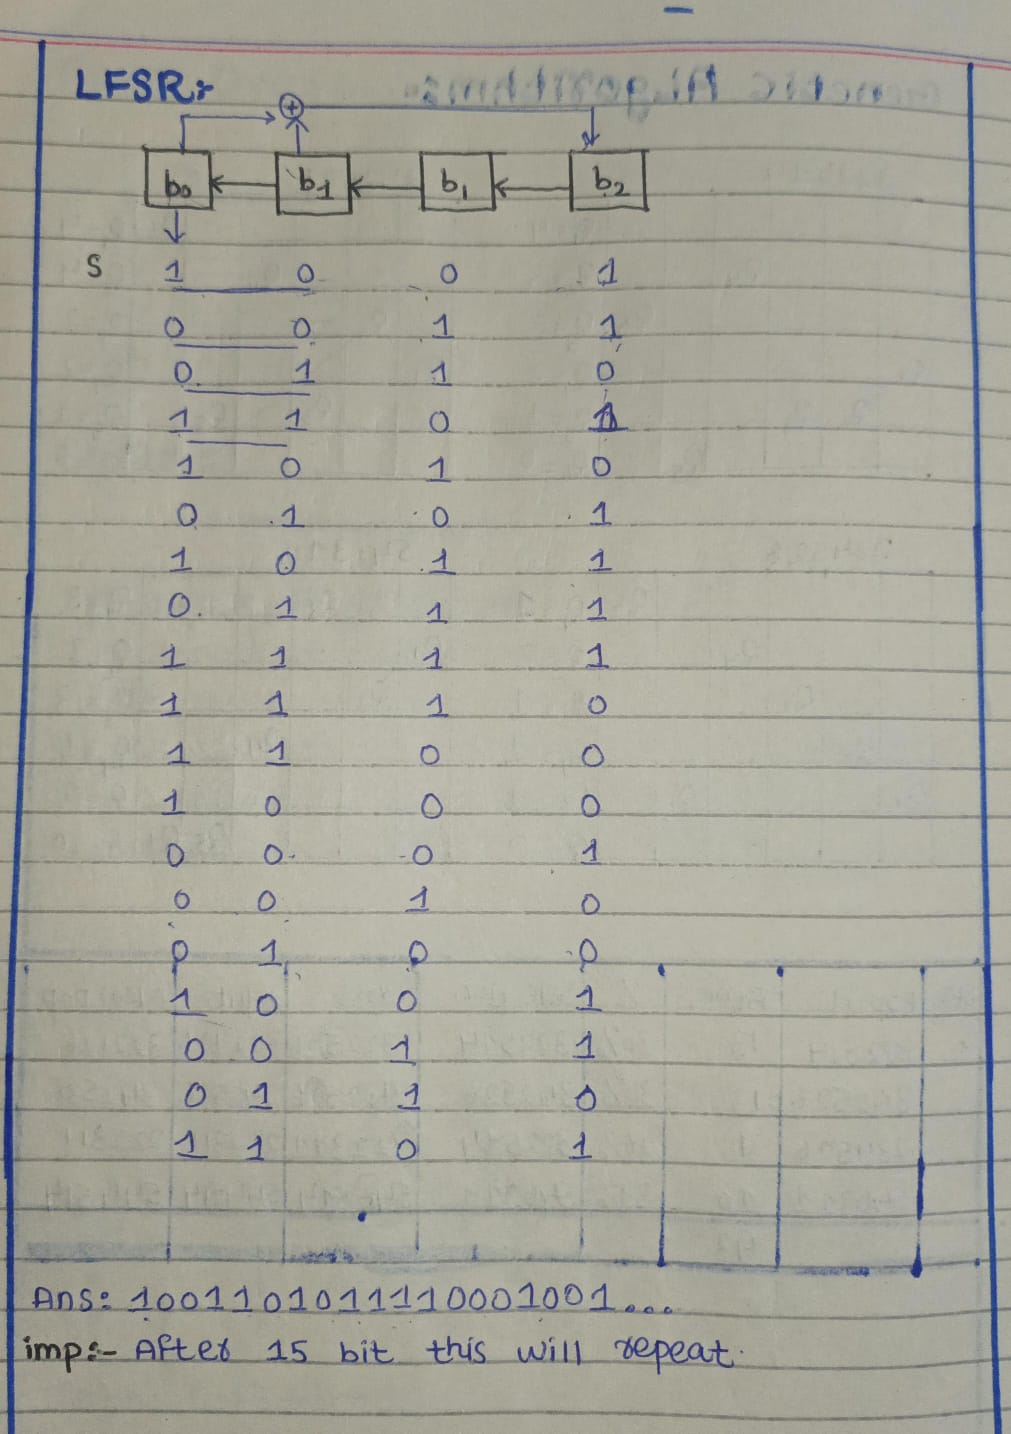 LFSR:-
⊕
b₀ b₁ b₁ b₂
S 1 0 0 1
0 0 1 1
0 1 1 0
1 1 0 1
1 0 1 0
0 1 0 1
1 0 1 1
0 1 1 1
1 1 1 1
1 1 1 0
1 1 0 0
1 0 0 0
0 0 0 1
0 0 1 0
0 1 0 0
1 0 0 1
0 0 1 1
0 1 1 0
1 1 0 1
Ans: 1001101011110001001...
imp:- After 15 bit this will repeat.